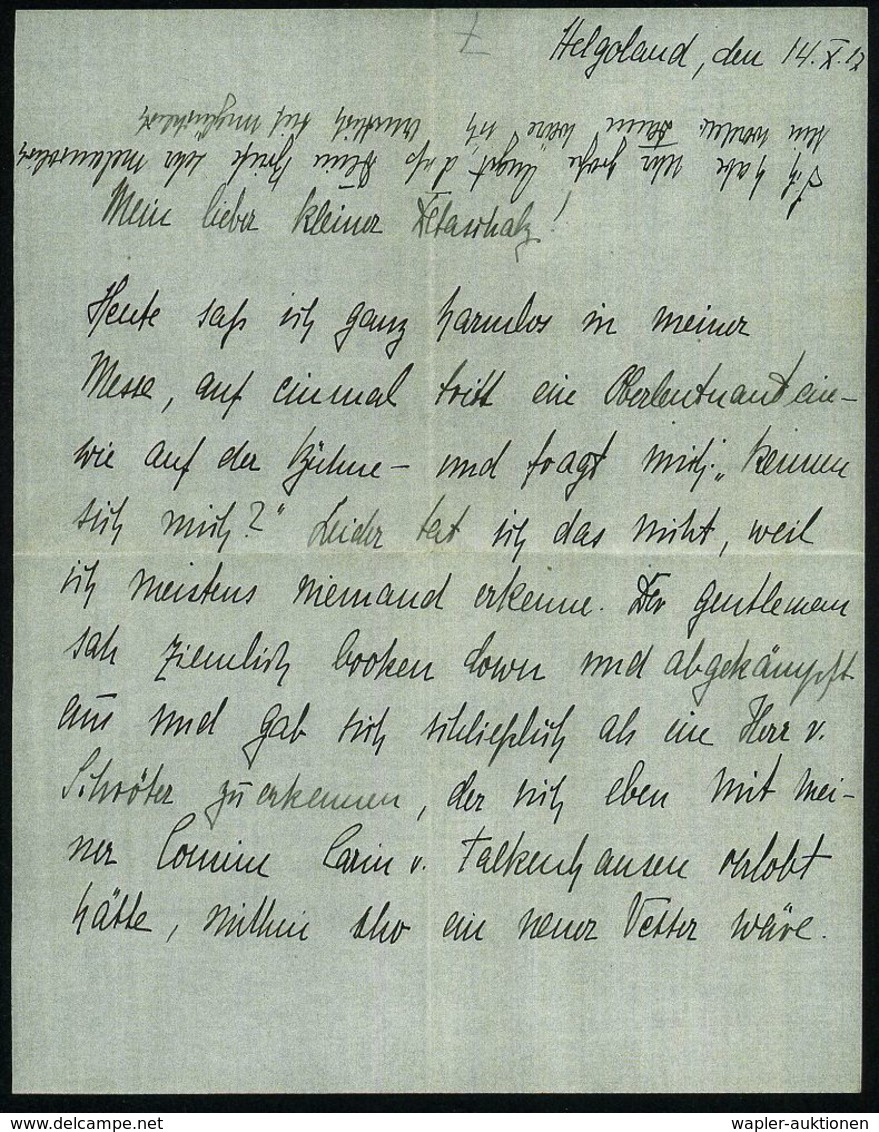 Helgoland, den 14. X. 17
Ich habe sehr große Angst, daß Deine Briefe sehr melancholisch
sein werden. Dann wäre ich wirklich tief unglücklich
Mein lieber kleiner Detaschatz!
Heute saß ich ganz harmlos in meiner
Messe, auf einmal tritt ein Oberleutnant ein –
wie auf der Bühne – und fragt mich: „kennen
sich mich?" Leider tat ich das nicht, weil
ich meistens niemand erkenne. Der gentleman
sah ziemlich brooken down und abgekämpft
aus und gab sich schließlich als ein Herr v.
Schröter zu erkennen, der sich eben mit mei-
ner Cousine Carin v. Falkenhausen verlobt
hätte, mithin also ein neuer Vetter wäre.
wapler-auktionen